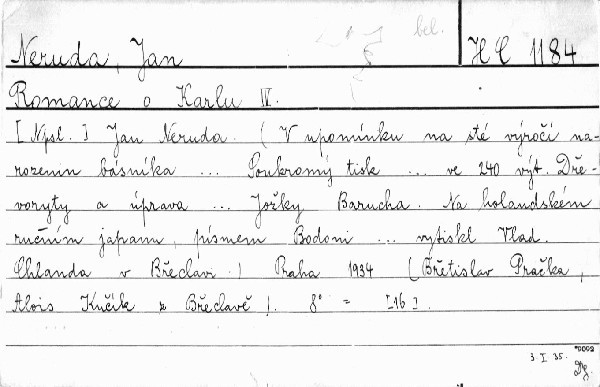 bel.
Neruda, Jan HC 1184
Romance o Karlu IV.
[Npsl.] Jan Neruda. (V upomínku na sté výročí na-
rozenin básníka ... Soukromý tisk ... ve 240 výt. Dře-
voryty a úprava ... Jožky Barucha. Na holandském
ručním japanu, písmem Bodoni ... vytiskl Vlad.
Chlanda v Břeclavi.) Praha 1934 (Břetislav Pračka,
Alois Kučík z Břeclavě). 8° = [16].
*9002
3. I 35.